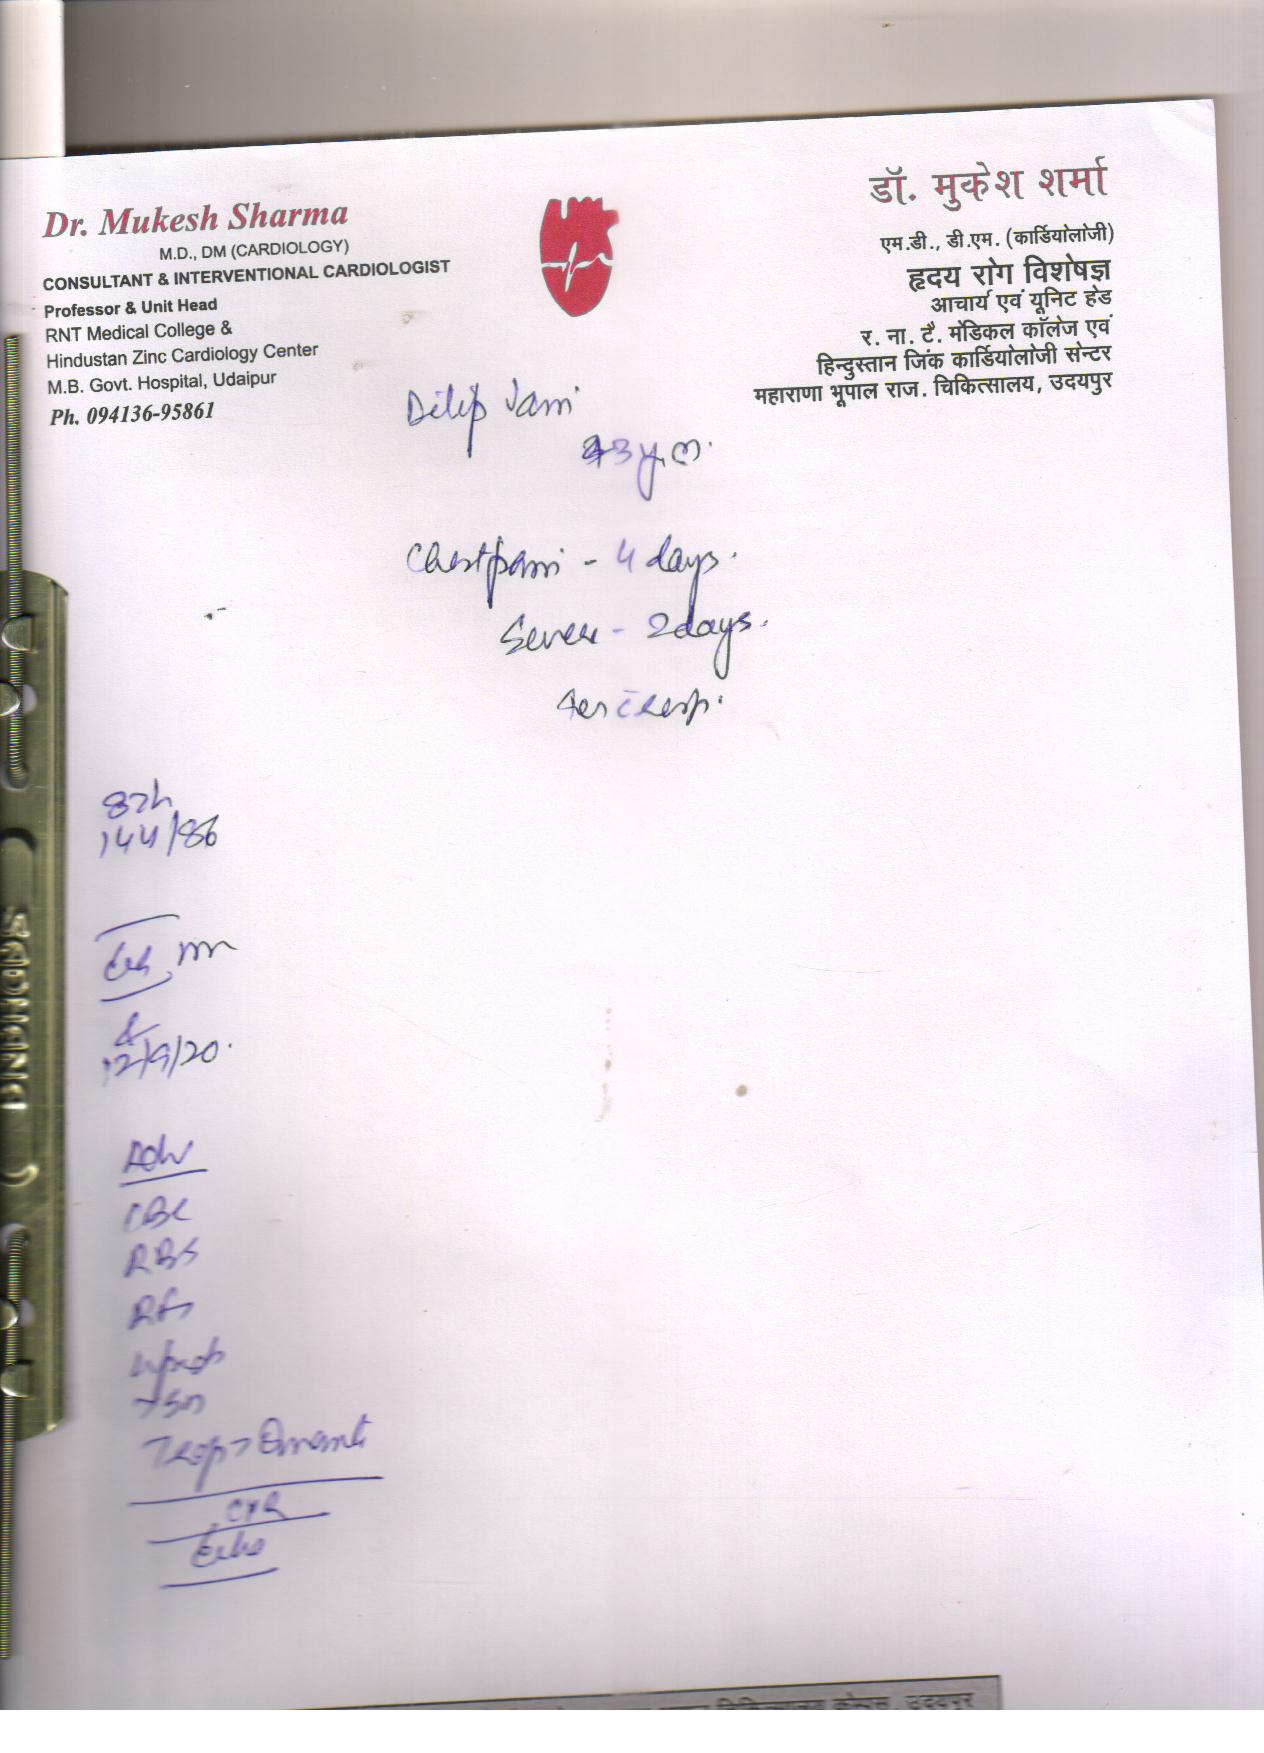 Dr. Mukesh Sharma
M.D., DM (CARDIOLOGY)
CONSULTANT & INTERVENTIONAL CARDIOLOGIST
Professor & Unit Head
RNT Medical College &
Hindustan Zinc Cardiology Center
M.B. Govt. Hospital, Udaipur
Ph. 094136-95861
डॉ. मुकेश शर्मा
एम.डी., डी.एम. (कार्डियोलोजी)
हृदय रोग विशेषज्ञ
आचार्य एवं यूनिट हेड
र. ना. टै. मेडिकल कॉलेज एवं
हिन्दुस्तान जिंक कार्डियोलोजी सेन्टर
महाराणा भूपाल राज. चिकित्सालय, उदयपुर
Dilip
Chestpain - 4 days.
Severe - 2 days.
144/86
12/9/20.
Adv
CBC
RBS
CXR
Echo
SADHANA